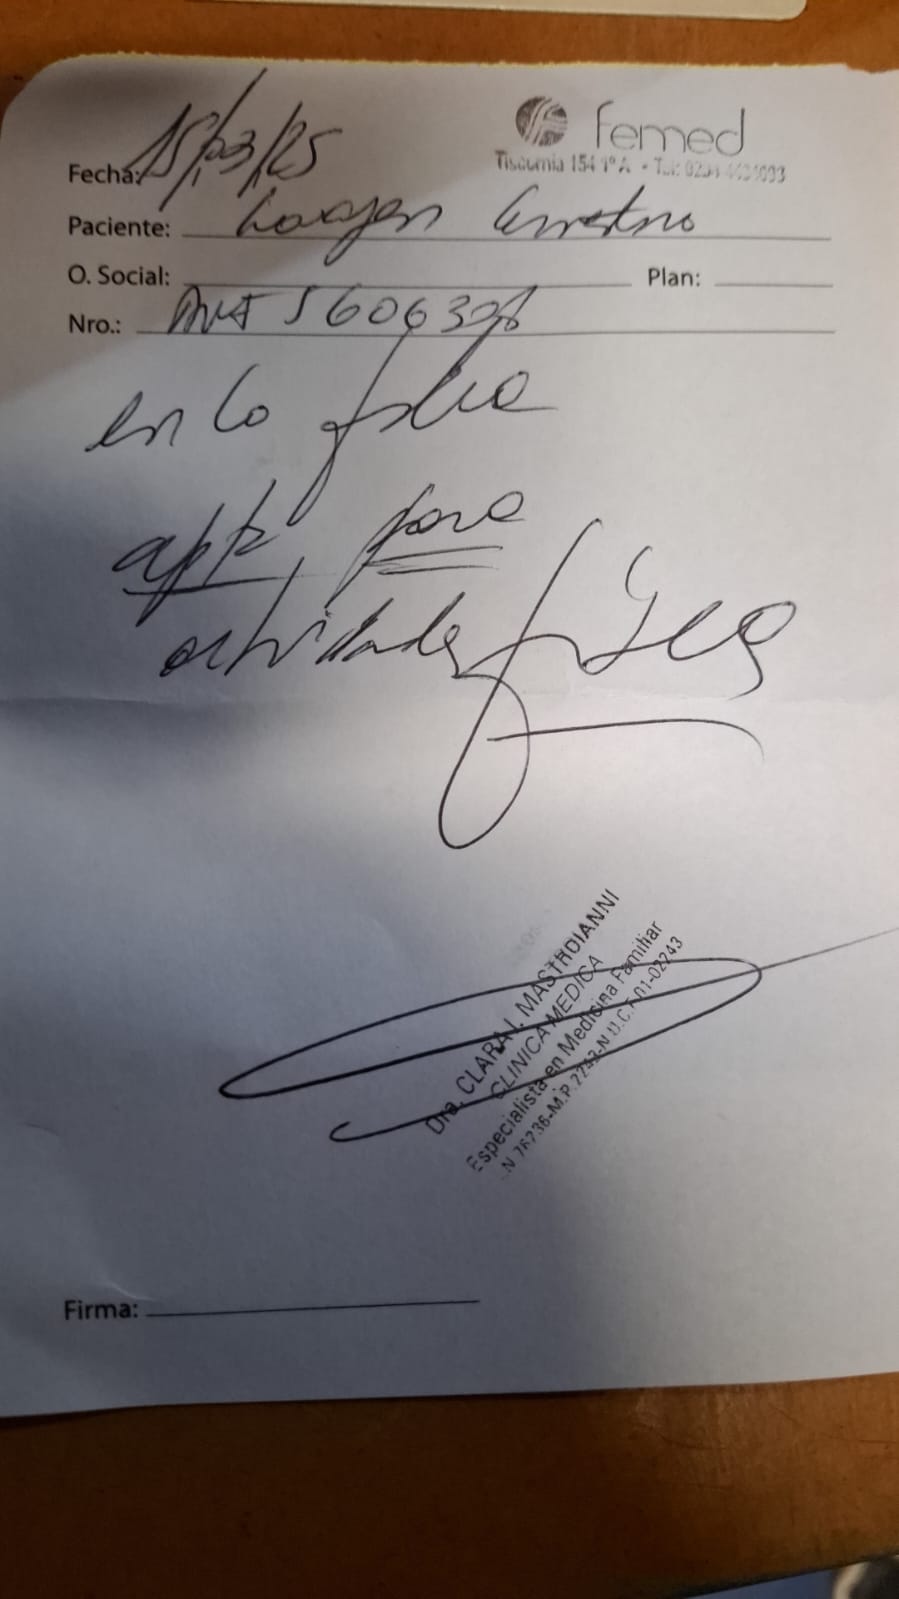 femed
Tiscornia 154 1º A - Tel: 0294
Fecha: 15/03/25
Paciente:
O. Social: Plan:
Nro.: 560639
en la fecha
apta para
actividades física
Dra. CLARA I. MASTROIANNI
CLINICA MEDICA
Especialista en Medicina Familiar
N 76736-M.P. 2243-N.U.C.F. 01-02243
Firma: